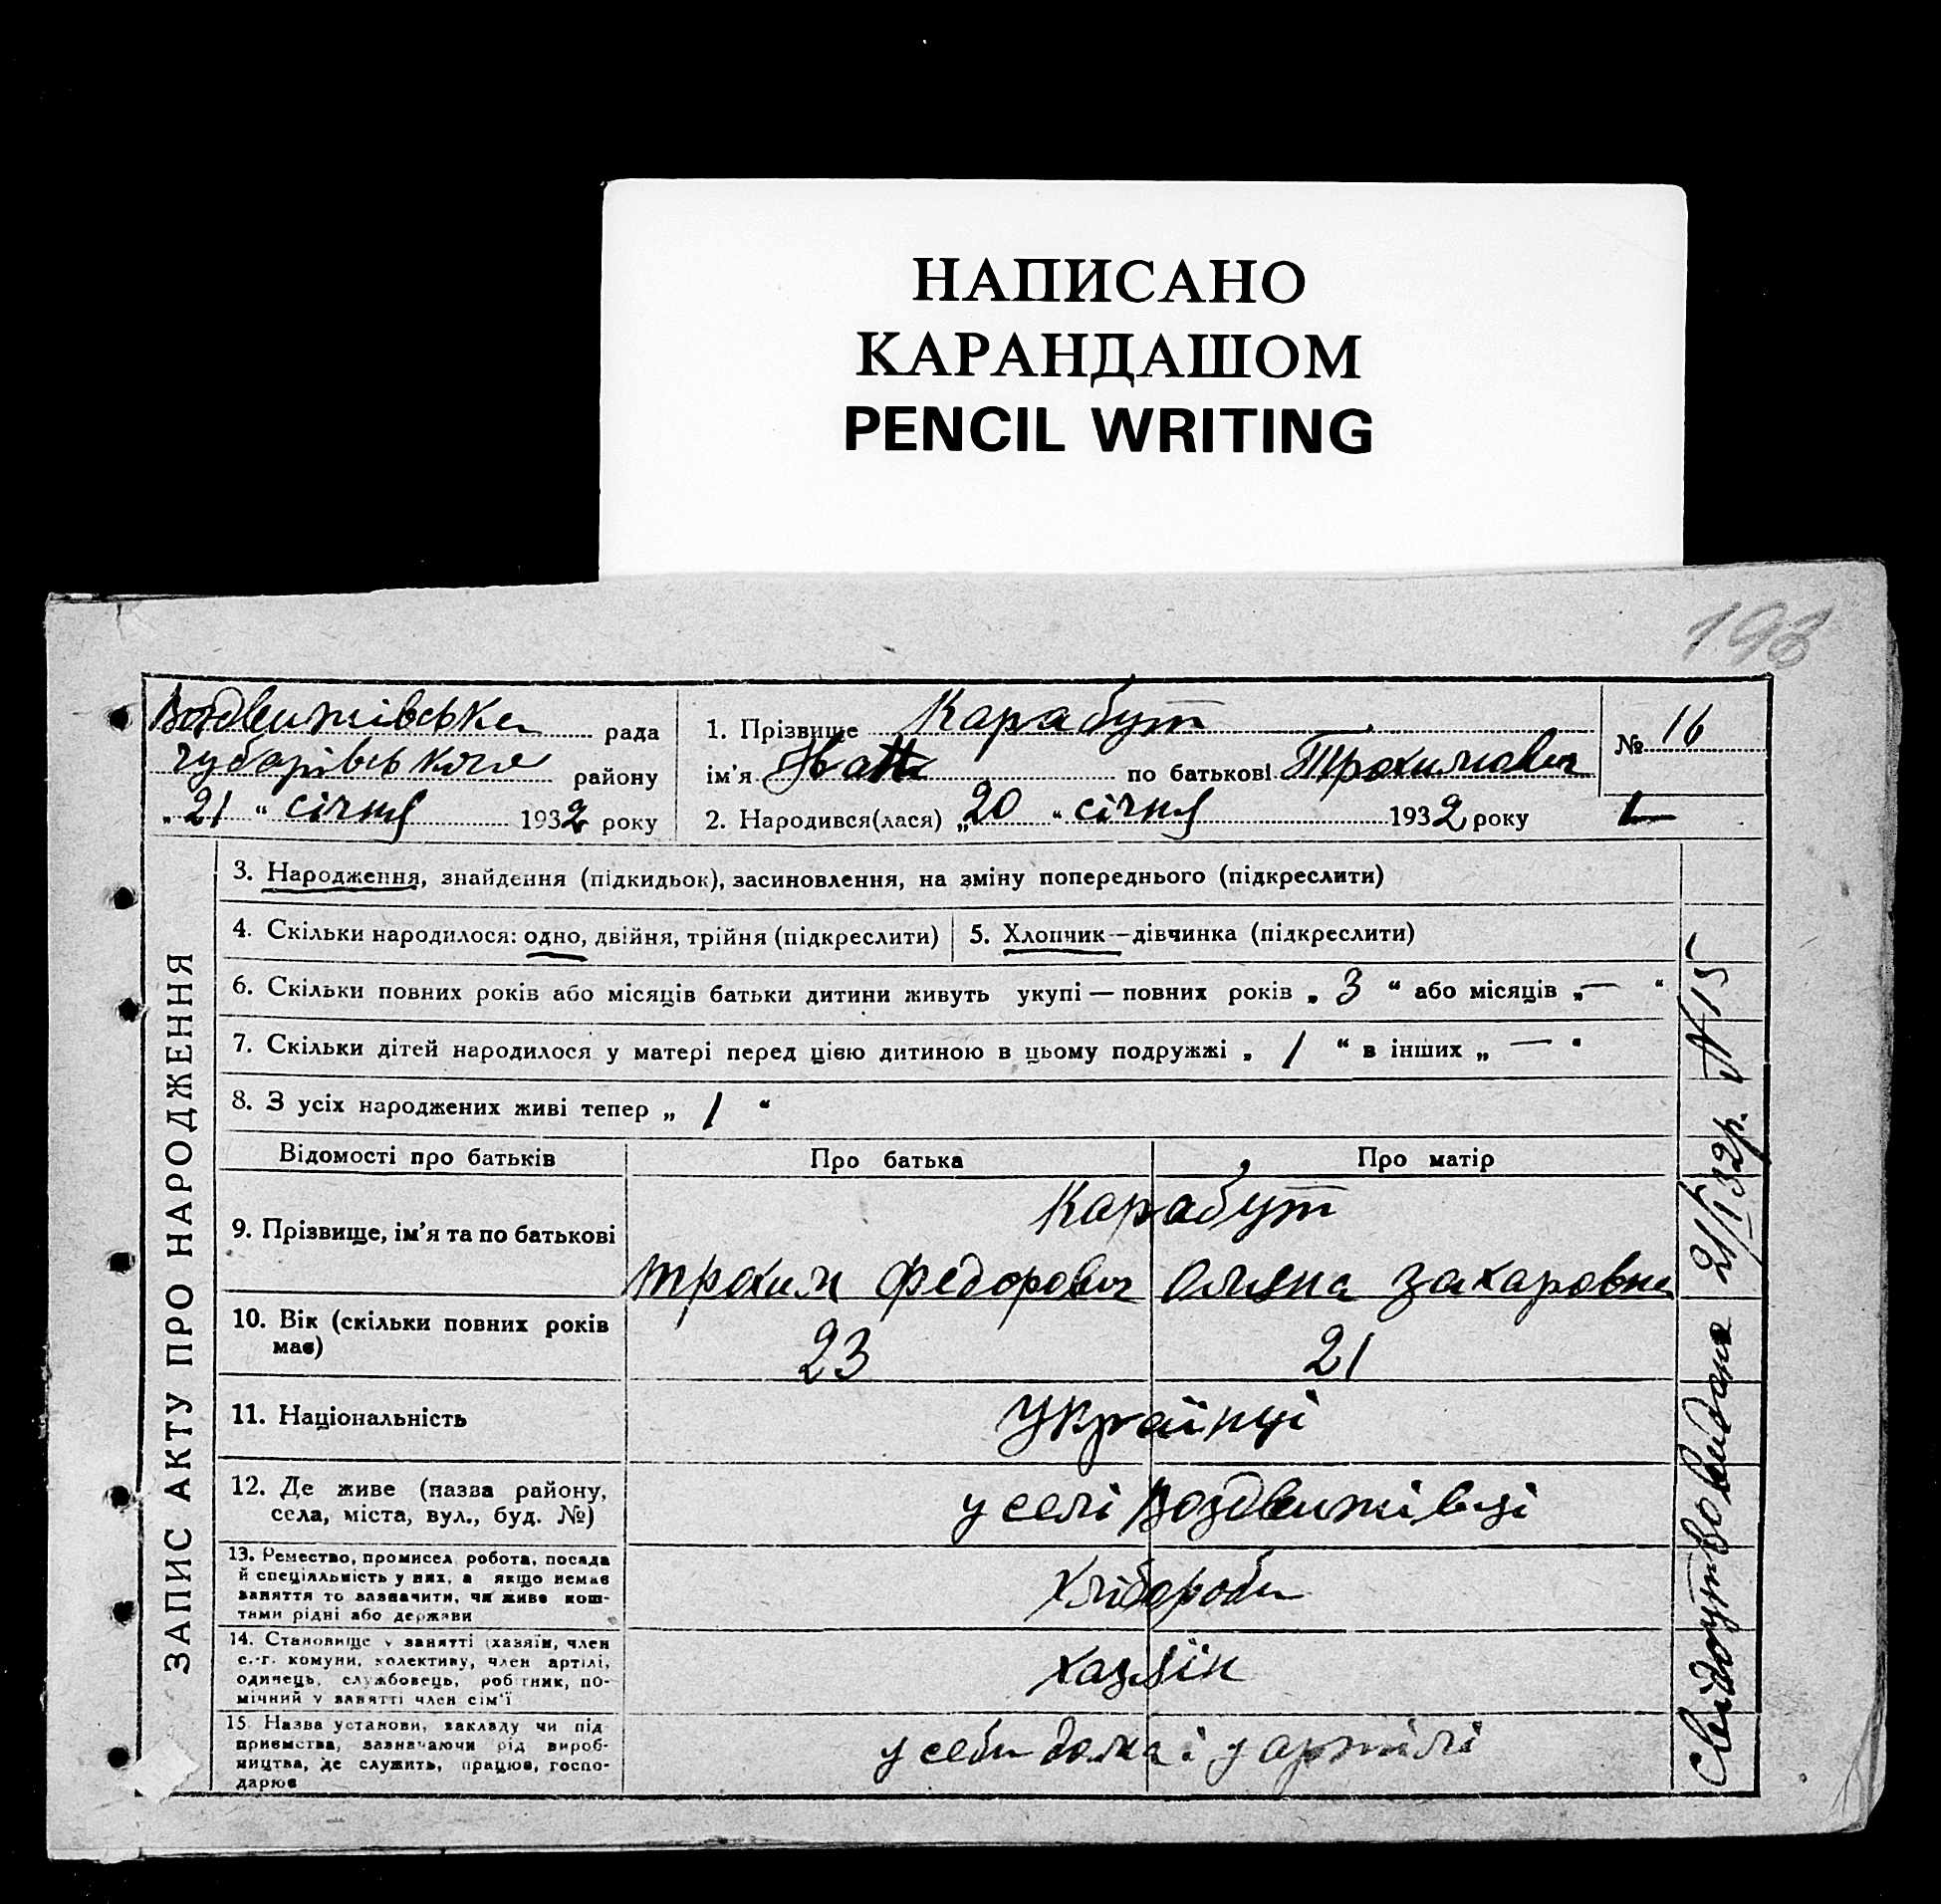 НАПИСАНО
КАРАНДАШОМ
PENCIL WRITING
198
Воздвижівська рада
Чубарівського району
„21“ січня 1932 року
1. Прізвище Карабут
ім'я по батькові Трохимович
2. Народився(лася) „20“ січня 1932 року
№ 16
ЗАПИС АКТУ ПРО НАРОДЖЕННЯ
3. Народження, знайдення (підкидьок), засиновлення, на зміну попереднього (підкреслити)
4. Скільки народилося: одно, двійня, трійня (підкреслити)
5. Хлопчик—дівчинка (підкреслити)
6. Скільки повних років або місяців батьки дитини живуть укупі — повних років „3“ або місяців „—“
7. Скільки дітей народилося у матері перед цією дитиною в цьому подружжі „1“ в інших „—“
8. З усіх народжених живі тепер „1“
Відомості про батьків Про батька Про матір
9. Прізвище, ім'я та по батькові
Карабут
Трохим Федорович Оляна Захаровна
10. Вік (скільки повних років
має)
23 21
11. Національність Українці
12. Де живе (назва району,
села, міста, вул., буд. №)
у селі Воздвижівці
13. Ремество, промисел робота, посада
й спеціяльність у них, а якщо немає
заняття то зазначити, чи живе кош-
тами рідні або держави
хлібороби
14. Становище у занятті (хазяїн, член
с.-г. комуни, колективу, член артілі,
одинець, службовець, робітник, по-
мічний у занятті член сім'ї
хазяїн
15. Назва установи, закладу чи під
приємства, зазначаючи рід вироб-
ництва, де служить, працює, госпо-
дарює
у себи дома і у артілі
Свідоцтво видана 21/I 32р. № 15